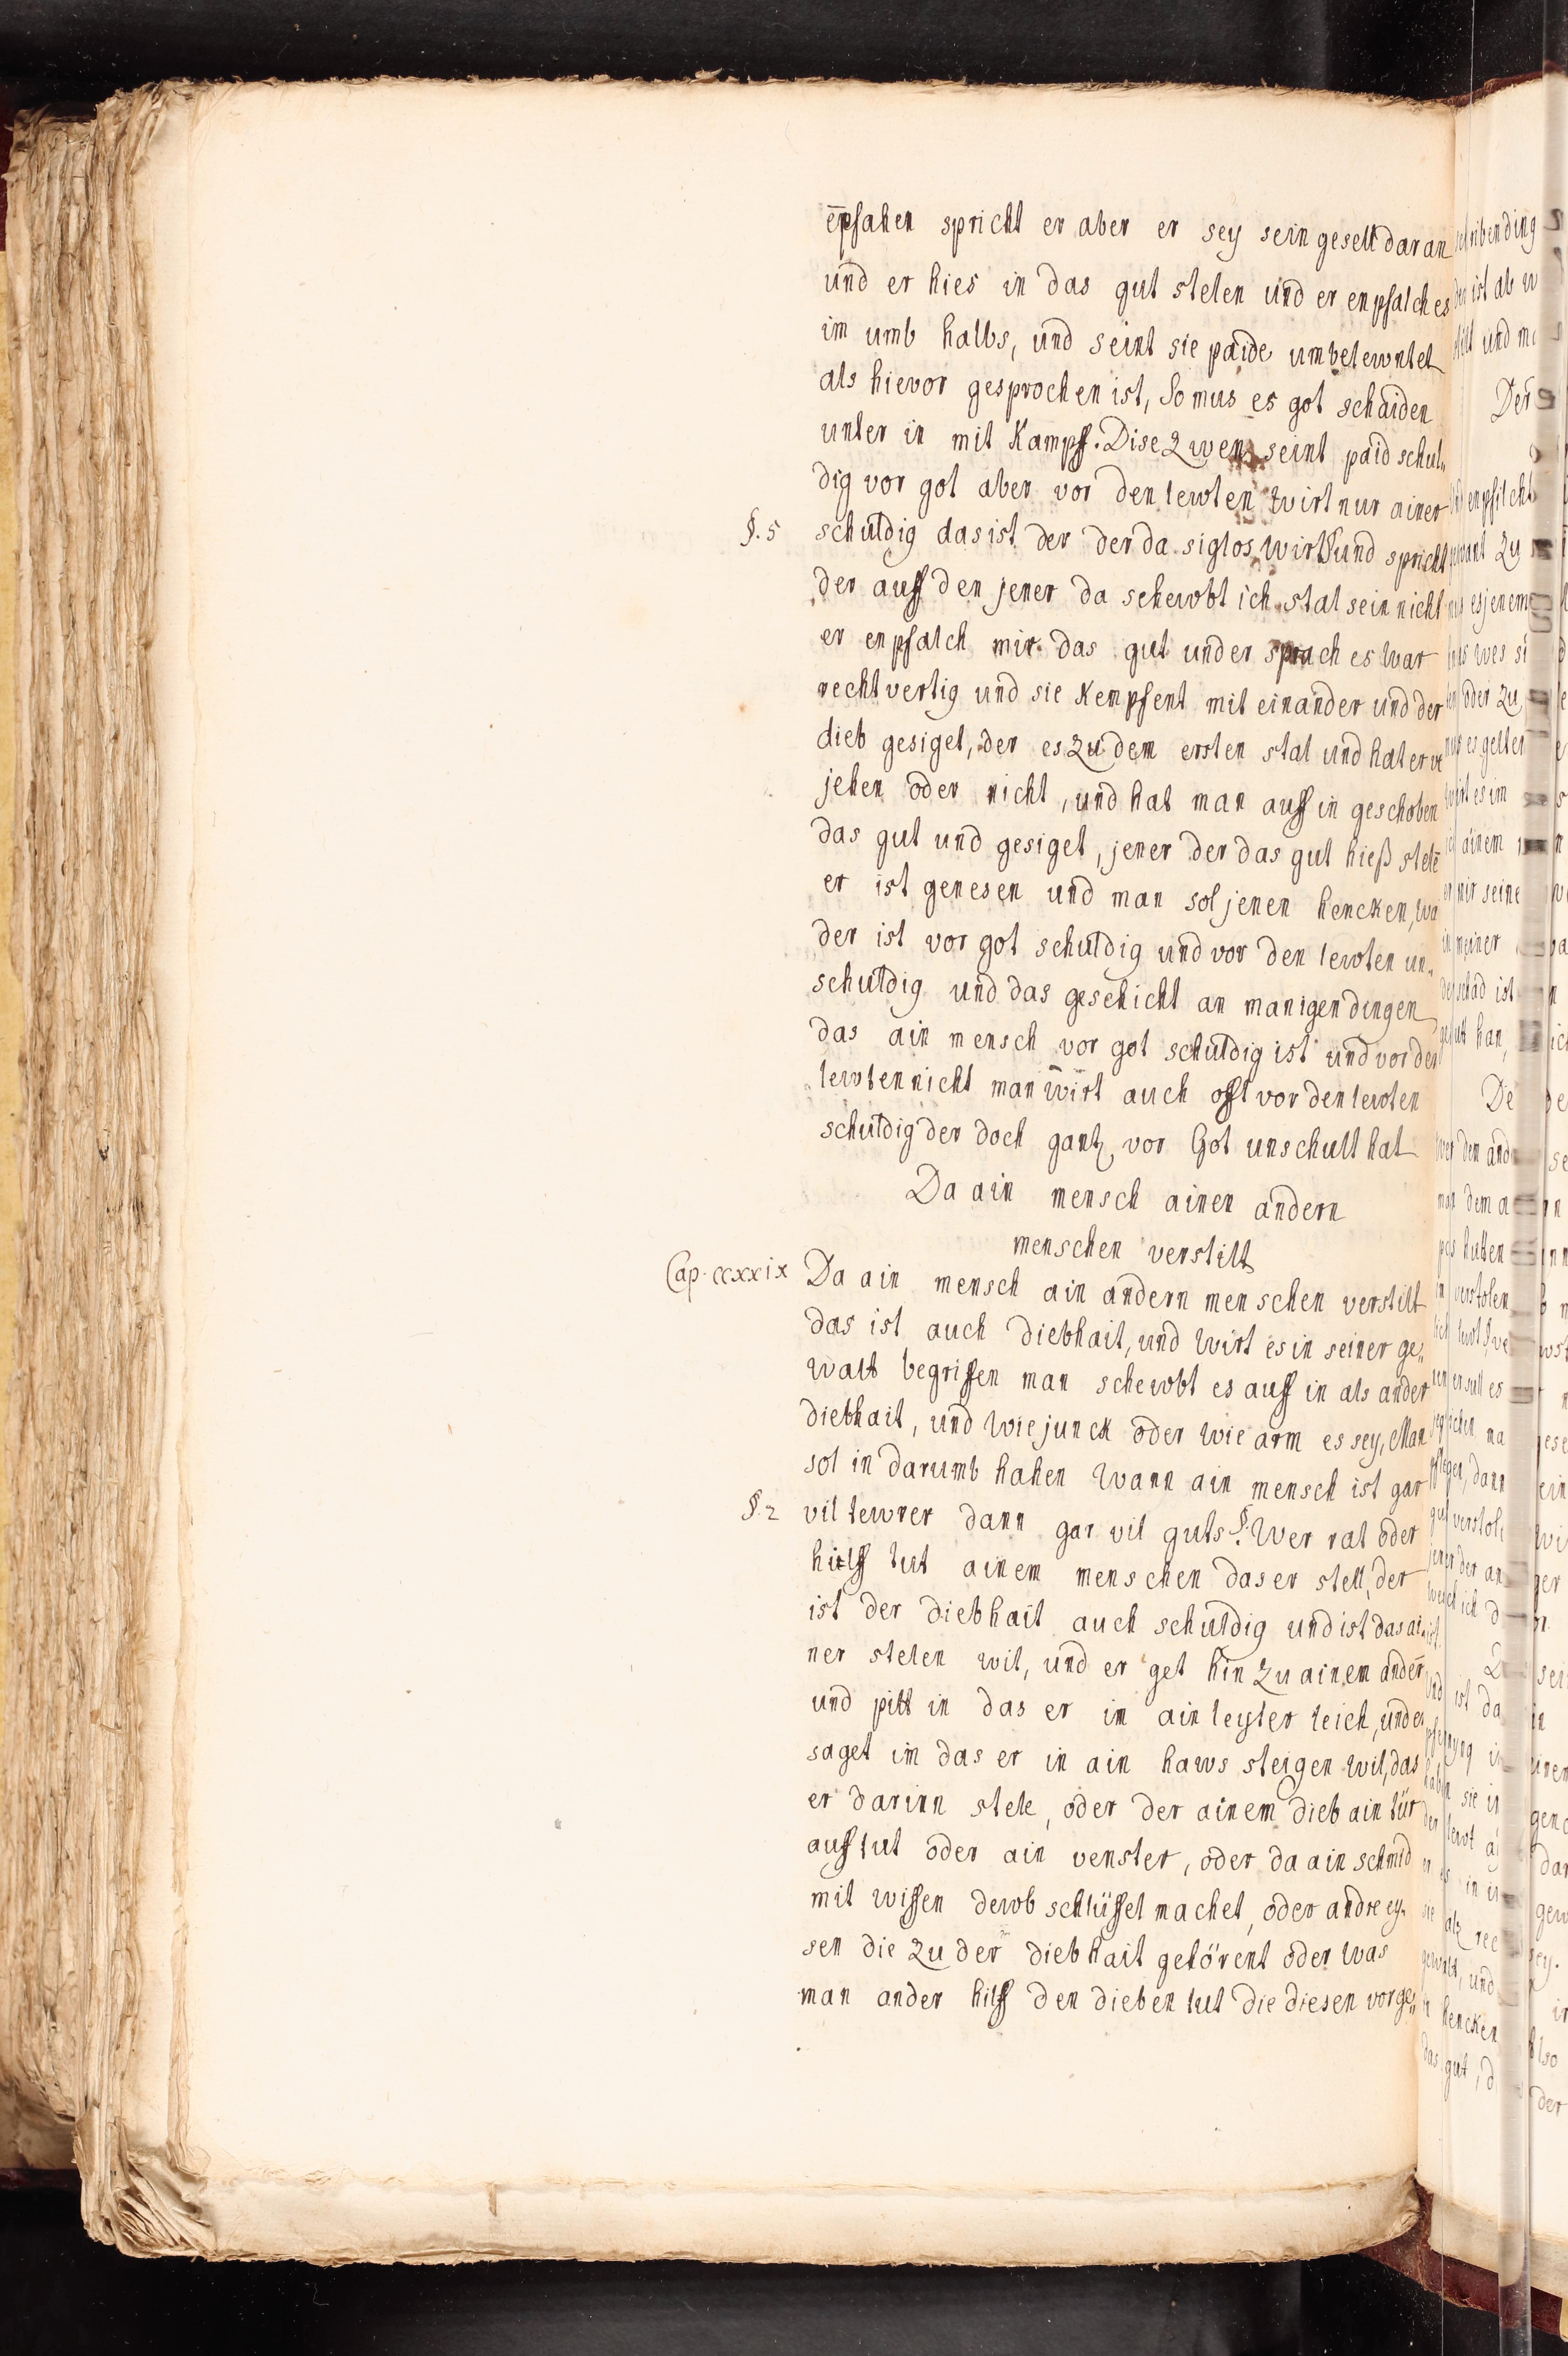 ēpfahen spricht er aber er sey sein gesell daran
und er hies in das gut stelen und er enpfalch es
im umb halbs, und seint sie paide umbelewntet
als hievor gesprochen ist, So mus es got schaiden
unter in mit Kampff. Dise zwen seint paid schul„
dig vor got aber vor den lewten wirt nur ainer
§. 5 schuldig das ist der der da siglos wirt § und spricht
der auff den jener da schewbt ich stal sein nicht
er enpfalch mir das gut und er sprach es war
rechtvertig und sie Kempfent mit einander und der
dieb gesiget, der es zu dem ersten stal und hat er ve
jehen oder nicht, und hat man auff in geschoben
das gut und gesiget, jener der das gut hieß stelē
er ist genesen und man sol jenen hencken, wa
der ist vor got schuldig und vor den lewten un„
schuldig und das geschicht an manigen dingen
das ain mensch vor got schuldig ist und vor den
lewten nicht man wirt auch offt vor den lewten
schuldig der doch gantz vor Got unschult hat
Da ain mensch ainen andern
menschen verstilt
Cap. ccxxix Da ain mensch ain andern menschen verstilt
das ist auch diebhait, und wirt es in seiner ge„
walt begriffen man schewbt es auff in als ander
diebhait, und wie junck oder wie arm es sey, Man
sol in darumb hahen wann ain mensch ist gar
§. 2 vil tewrer dann gar vil guts §. Wer rat oder
hilff tut ainem menschen das er stell, der
ist der diebhait auch schuldig und ist das ai„
ner stelen wil, und er get hin zu ainem andern̄
und pitt in das er im ain leyter leich, und er
saget im das er in ain haws steigen wil, das
er darinn stele, oder der ainem dieb ain tür
auff tut oder ain venster, oder da ain schmid
mit wissen dewb schlüssel machet, oder andre ey„
sen die zu der diebhait gehörent oder was
man ander hilff den dieben tut die diesen vorge„